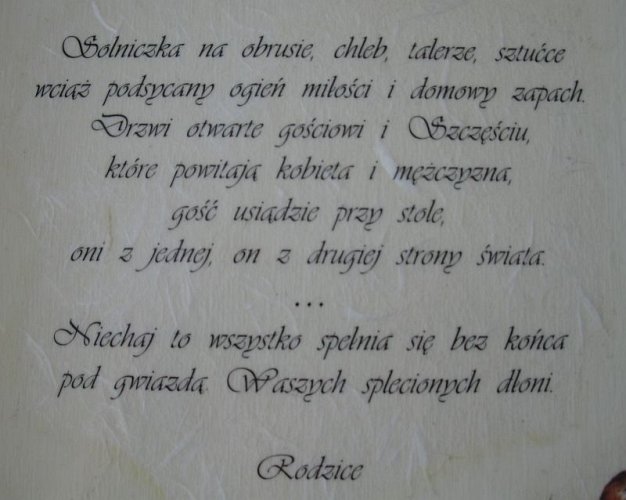 Solniczka na obrusie, chleb, talerze, sztućce
wciąż podsycany ogień miłości i domowy zapach.
Drzwi otwarte gościowi i Szczęściu,
które powitają kobieta i mężczyzna,
gość usiądzie przy stole,
oni z jednej, on z drugiej strony świata.
...
Niechaj to wszystko spełnia się bez końca
pod gwiazdą Waszych splecionych dłoni.
Rodzice